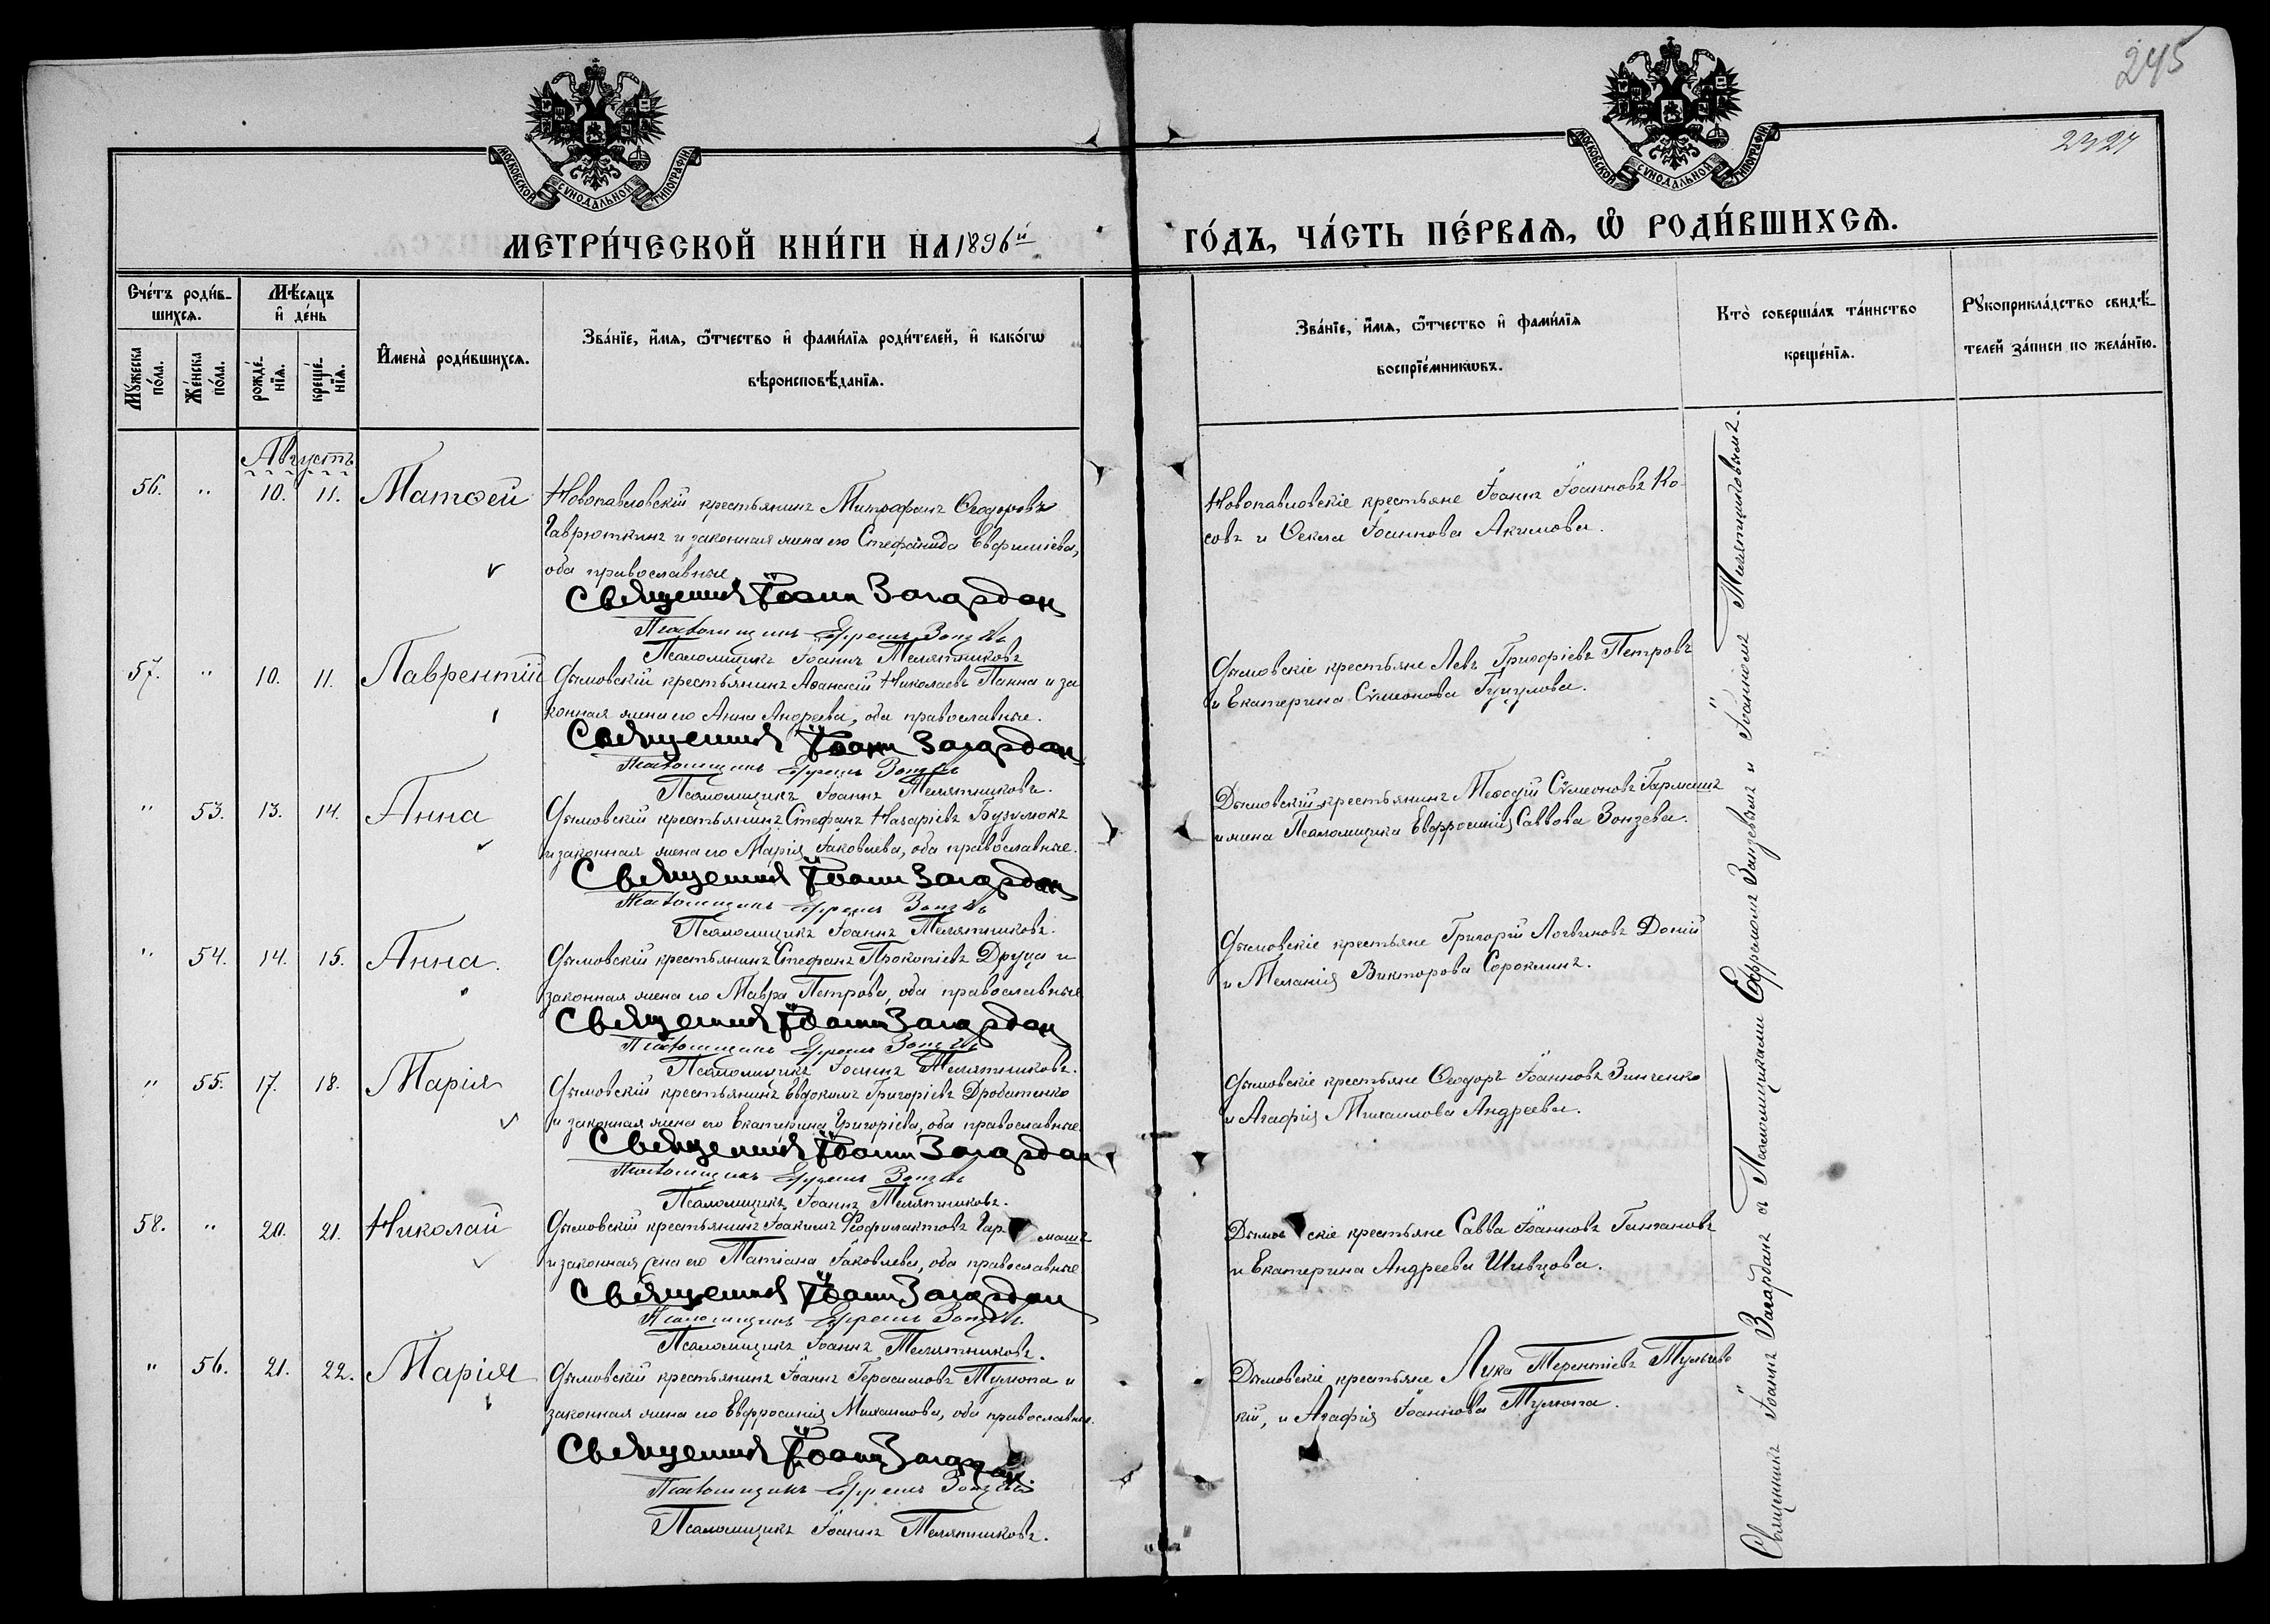 245
2327
МОСКОВСКОЙ СѴНОДАЛЬНОЙ ТИПОГРАФІИ
МОСКОВСКОЙ СѴНОДАЛЬНОЙ ТИПОГРАФІИ
МЕТРИ́ЧЕСКОЙ КНИ́ГИ НА 1896й ГО́ДЪ, ЧА́СТЬ ПЕ́РВАѦ, Ѡ РОДИ́ВШИХСѦ.
Сче́тъ роди́в-
шихсѧ.
Мꙋ́жеска по́ла.
Же́нска по́ла.
Мѣ́сѧцъ
и҆ де́нь
рожде́-
нїѧ.
креще́-
нїѧ.
И҆мена̀ роди́вшихсѧ.
Зва́нїе, и҆́мѧ, ѻ҆́тчество и҆ фами́лїѧ роди́телей, и҆ како́гѡ
вѣроисповѣ́данїѧ.
Зва́нїе, и҆́мѧ, ѻ҆́тчество и҆ фами́лїѧ
воспрїе́мникѡвъ.
Кто̀ соверша́лъ та́инство
креще́нїѧ.
Рꙋкоприкла́дство свидѣ́-
телей за́писи по жела́нїю.
Августъ
56. " 10. 11. Матѳей
Новопавловскій крестьянинъ Митрофанъ Ѳеодоровъ
Гаврюткинъ и законная жена его Стефанида Евфиміева,
оба православные
Священникъ Іоаннъ Загардан
Псаломщикъ Ефремъ Зонзевъ
Псаломщикъ Іоаннъ Телятниковъ
Новопавловскіе крестьяне Іоаннъ Іоанновъ Ко-
совъ и Ѳекла Іоаннова Акимова.
57. " 10. 11. Лаврентій
Дымовскій крестьянинъ Аѳанасій Николаевъ Панна и за
конная жена его Анна Андреева, оба православные.
Священникъ Іоаннъ Загардан
Псаломщикъ Ефремъ Зонзевъ
Псаломщикъ Іоаннъ Телятниковъ.
Дымовскіе крестьяне Левъ Григоріевъ Петровъ
и Екатерина Сѵмеонова Гуцулова.
" 53. 13. 14. Анна
Дымовскій крестьянинъ Стефанъ Назаріевъ Бузумокъ
и законная жена его Марія Іаковлева, оба православные.
Священникъ Іоаннъ Загардан
Псаломщикъ Ефремъ Зонзевъ
Псаломщикъ Іоаннъ Телятниковъ.
Дымовскій крестьянинъ Меѳодій Сѵмеоновъ Гармашъ
и жена Псаломщика Евфросинія Саввова Зонзева.
" 54. 14. 15. Анна.
Дымовскій крестьянинъ Стефанъ Прокопіевъ Друца и
законная жена его Мавра Петрова, оба православные
Священникъ Іоаннъ Загардан
Псаломщикъ Ефремъ Зонзевъ
Псаломщикъ Іоаннъ Телятниковъ.
Дымовскіе крестьяне Григорій Логвиновъ Доній
и Меланія Викторова Сороклинъ.
" 55. 17. 18. Марія
Дымовскій крестьянинъ Евдокимъ Григоріевъ Дробатенко
и законная жена его Екатерина Григоріева, оба православные.
Священникъ Іоаннъ Загардан
Псаломщикъ Ефремъ Зонзевъ
Псаломщикъ Іоаннъ Телятниковъ.
Дымовскіе крестьяне Ѳеодоръ Іоанновъ Зинченко
и Агафія Михаилова Андреева.
58. " 20. 21. Николай
Дымовскій крестьянинъ Іоакимъ Ѳеофилактовъ Гар машъ
и законная жена его Татіана Іаковлева, оба православные
Священникъ Іоаннъ Загардан
Псаломщикъ Ефремъ Зонзевъ.
Псаломщикъ Іоаннъ Телятниковъ.
Дымов скіе крестьяне Савва Іоанновъ Ганчановъ
и Екатерина Андреева Шевцова.
" 56. 21. 22. Марія
Дымовскій крестьянинъ Іоаннъ Герасимовъ Тулюпа и
законная жена его Евфросинія Михаилова, оба православные.
Священникъ Іоаннъ Загардан.
Псаломщикъ Ефремъ Зонзевъ
Псаломщикъ Іоаннъ Телятниковъ.
Дымовскіе крестьяне Лука Терентіевъ Тульчев
кій, и Агафія Іоаннова Тулюпа.
Священникъ Іоаннъ Загарданъ съ Псаломщиками Ефремомъ Зонзевымъ и Іоанномъ Телятниковымъ.